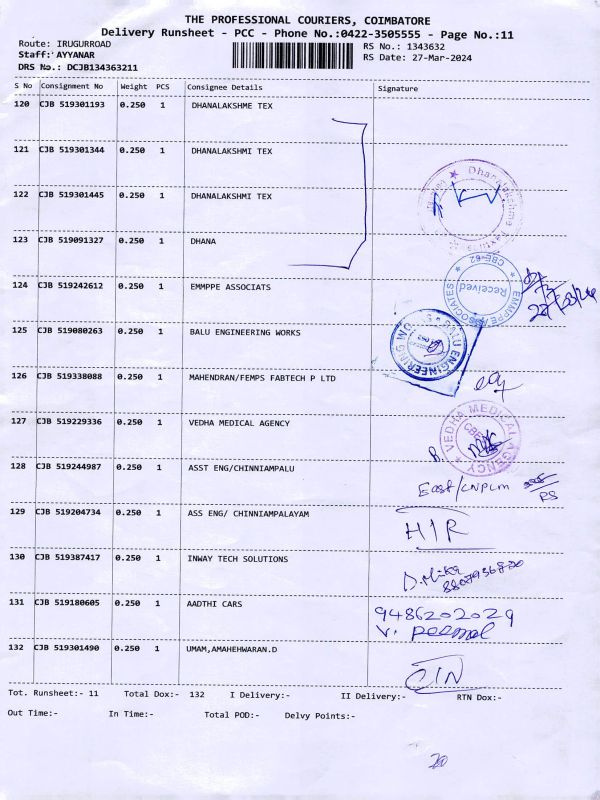 THE PROFESSIONAL COURIERS, COIMBATORE
Delivery Runsheet - PCC - Phone No.:0422-3505555 - Page No.:11
Route: IRUGURROAD
RS No.: 1343632
Staff: AYYANAR
RS Date: 27-Mar-2024
DRS No.: DCJB134363211
S No Consignment No Weight PCS Consignee Details Signature
120 CJB 519301193 0.250 1 DHANALAKSHME TEX
121 CJB 519301344 0.250 1 DHANALAKSHMI TEX
122 CJB 519301445 0.250 1 DHANALAKSHMI TEX
Dhanalakshma
123 CJB 519091327 0.250 1 DHANA
124 CJB 519242612 0.250 1 EMMPPE ASSOCIATS
CBE-62 EMMPPE ASSOCIATES
Received
125 CJB 519080263 0.250 1 BALU ENGINEERING WORKS
BALU ENGINEERING WO
126 CJB 519338088 0.250 1 MAHENDRAN/FEMPS FABTECH P LTD
127 CJB 519229336 0.250 1 VEDHA MEDICAL AGENCY
VEDHA MEDICAL AGENCY
CBE
128 CJB 519244987 0.250 1 ASST ENG/CHINNIAMPALU
East/CNPLM
129 CJB 519204734 0.250 1 ASS ENG/ CHINNIAMPALAYAM
H/R
130 CJB 519387417 0.250 1 INWAY TECH SOLUTIONS
131 CJB 519180605 0.250 1 AADTHI CARS
9486202029
132 CJB 519301490 0.250 1 UMAM,AMAHEHWARAN.D
Tot. Runsheet:- 11 Total Dox:- 132 I Delivery:- II Delivery:- RTN Dox:-
Out Time:- In Time:- Total POD:- Delvy Points:-